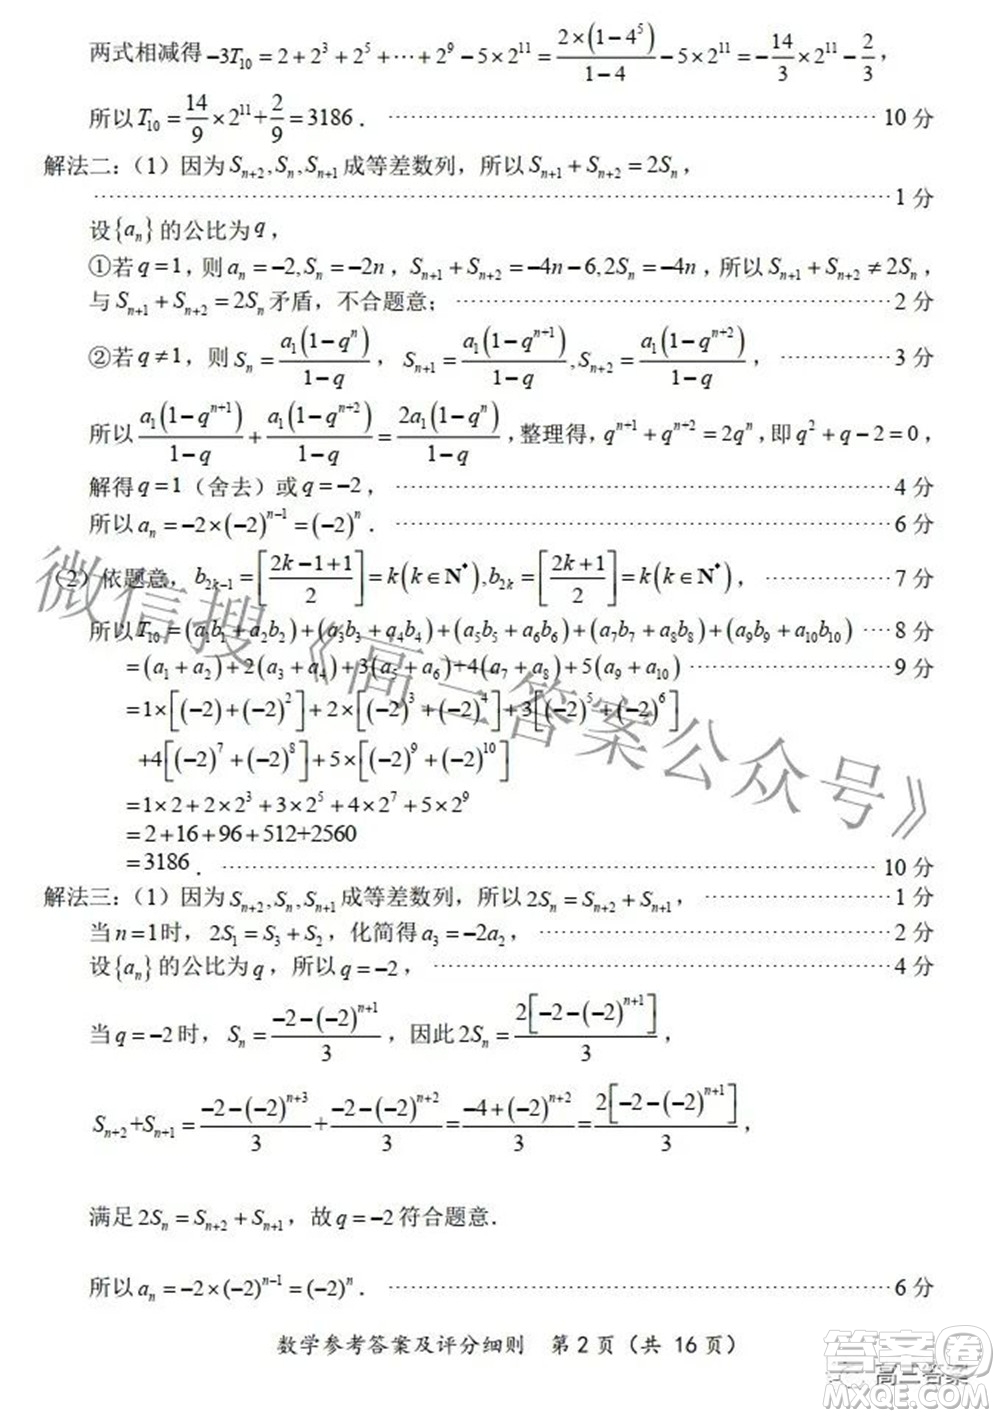 两式相减得 -3T₁₀ = 2+2³+2⁵+⋯+2⁹-5×2¹¹ = \frac{2×(1-4⁵)}{1-4} -5×2¹¹ = -\frac{14}{3}×2¹¹-\frac{2}{3},
所以 T₁₀ = \frac{14}{9}×2¹¹+\frac{2}{9} = 3186. ⋯⋯ 10 分
解法二：(1) 因为 S_{n+2}, S_n, S_{n+1} 成等差数列，所以 S_{n+1}+S_{n+2}=2S_n,
⋯⋯ 1 分
设{a_n}的公比为 q,
①若 q=1, 则 a_n=-2, S_n=-2n, S_{n+1}+S_{n+2}=-4n-6, 2S_n=-4n, 所以 S_{n+1}+S_{n+2}≠2S_n,
与 S_{n+1}+S_{n+2}=2S_n 矛盾，不合题意; ⋯⋯ 2 分
②若 q≠1, 则 S_n=\frac{a_1(1-q^n)}{1-q}, S_{n+1}=\frac{a_1(1-q^{n+1})}{1-q}, S_{n+2}=\frac{a_1(1-q^{n+2})}{1-q}, ⋯⋯ 3 分
所以 \frac{a_1(1-q^{n+1})}{1-q}+\frac{a_1(1-q^{n+2})}{1-q}=\frac{2a_1(1-q^n)}{1-q}, 整理得, q^{n+1}+q^{n+2}=2q^n, 即 q²+q-2=0,
解得 q=1（舍去）或 q=-2, ⋯⋯ 4 分
所以 a_n=-2×(-2)^{n-1}=(-2)^n. ⋯⋯ 6 分
(2) 依题意, b_{2k-1}=[\frac{2k-1+1}{2}]=k(k∈N*), b_{2k}=[\frac{2k+1}{2}]=k(k∈N*), ⋯⋯ 7 分
所以 T₁₀=(a₁b₁+a₂b₂)+(a₃b₃+a₄b₄)+(a₅b₅+a₆b₆)+(a₇b₇+a₈b₈)+(a₉b₉+a₁₀b₁₀) ⋯⋯ 8 分
=(a₁+a₂)+2(a₃+a₄)+3(a₅+a₆)+4(a₇+a₈)+5(a₉+a₁₀) ⋯⋯ 9 分
=1×[(-2)+(-2)²]+2×[(-2)³+(-2)⁴]+3[(-2)⁵+(-2)⁶]
+4[(-2)⁷+(-2)⁸]+5×[(-2)⁹+(-2)¹⁰]
=1×2+2×2³+3×2⁵+4×2⁷+5×2⁹
=2+16+96+512+2560
=3186. ⋯⋯ 10 分
解法三：(1) 因为 S_{n+2}, S_n, S_{n+1} 成等差数列，所以 2S_n=S_{n+2}+S_{n+1}, ⋯⋯ 1 分
当 n=1 时, 2S₁=S₃+S₂, 化简得 a₃=-2a₂, ⋯⋯ 2 分
设{a_n}的公比为 q, 所以 q=-2, ⋯⋯ 4 分
当 q=-2 时, S_n=\frac{-2-(-2)^{n+1}}{3}, 因此 2S_n=\frac{2[-2-(-2)^{n+1}]}{3},
S_{n+2}+S_{n+1}=\frac{-2-(-2)^{n+3}}{3}+\frac{-2-(-2)^{n+2}}{3}=\frac{-4+(-2)^{n+2}}{3}=\frac{2[-2-(-2)^{n+1}]}{3},
满足 2S_n=S_{n+2}+S_{n+1}, 故 q=-2 符合题意.
所以 a_n=-2×(-2)^{n-1}=(-2)^n. ⋯⋯ 6 分
数学参考答案及评分细则 第 2 页（共 16 页）
微信搜《高三答案公众号》
高三答案
答案圈
MXQE.COM